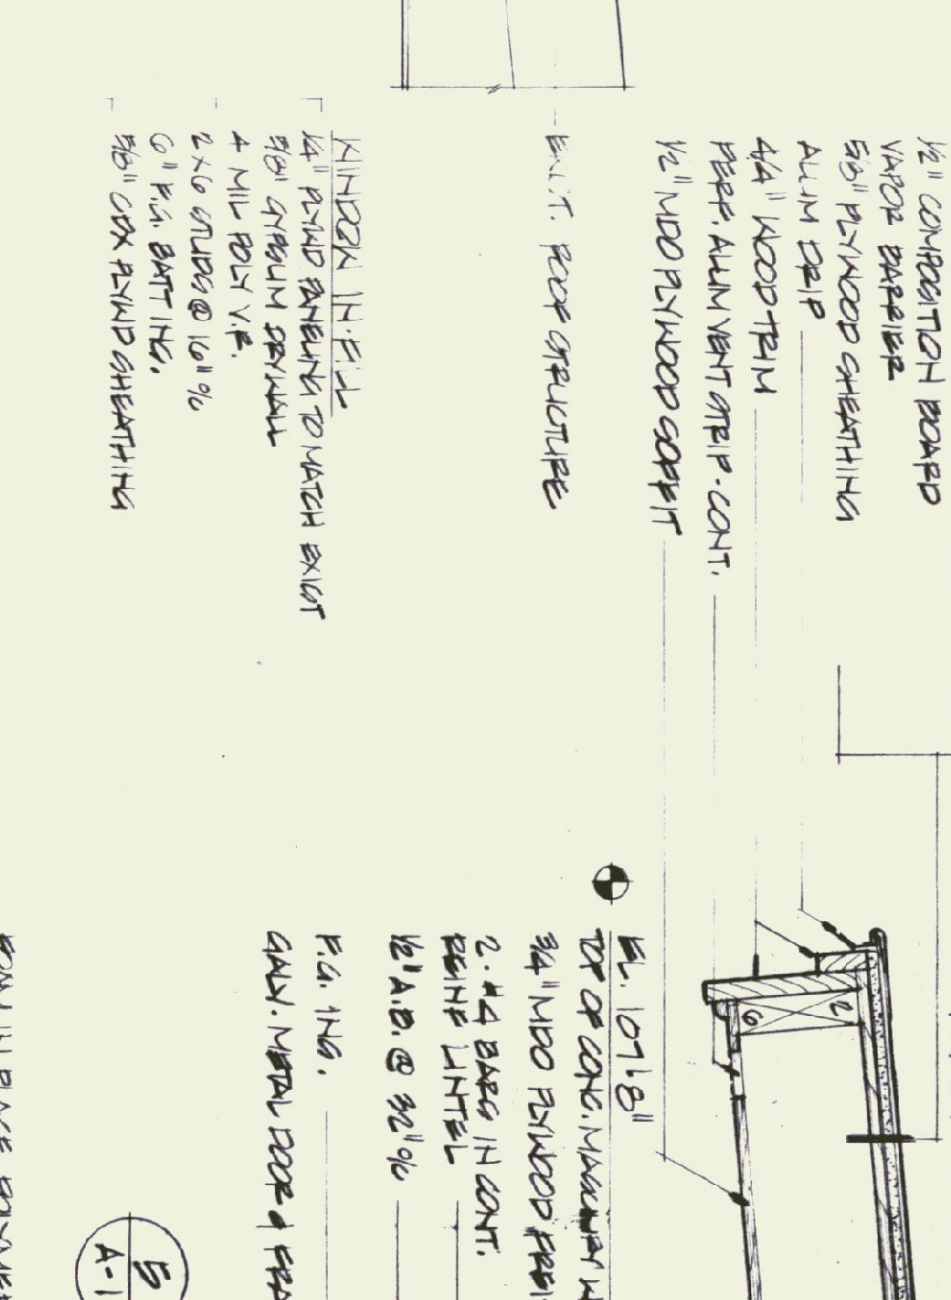 1/2" COMPOSITION BOARD
VAPOR BARRIER
5/8" PLYWOOD SHEATHING
ALUM DRIP
4/4" WOOD TRIM
PERF. ALUM VENT STRIP - CONT.
1/2" MDO PLYWOOD SOFFIT
ROOF STRUCTURE
WINDOW IN-FILL
1/4" PLYWD PANELING TO MATCH EXIST
5/8" GYPSUM DRYWALL
4 MIL POLY V.B.
2x6 STUDS @ 16" %
6" F.G. BATTING.
5/8" CDX PLYWD SHEATHING
2
6
EL. 107'-8"
TOP OF CONC. MASONRY W
3/4" MDO PLYWOOD
2 - #4 BARS IN CONT.
REINF LINTEL
1/2" A.B. @ 32" %
F.G. ING.
GALV. METAL DOOR & FRA
5
A-1
IN PLACE